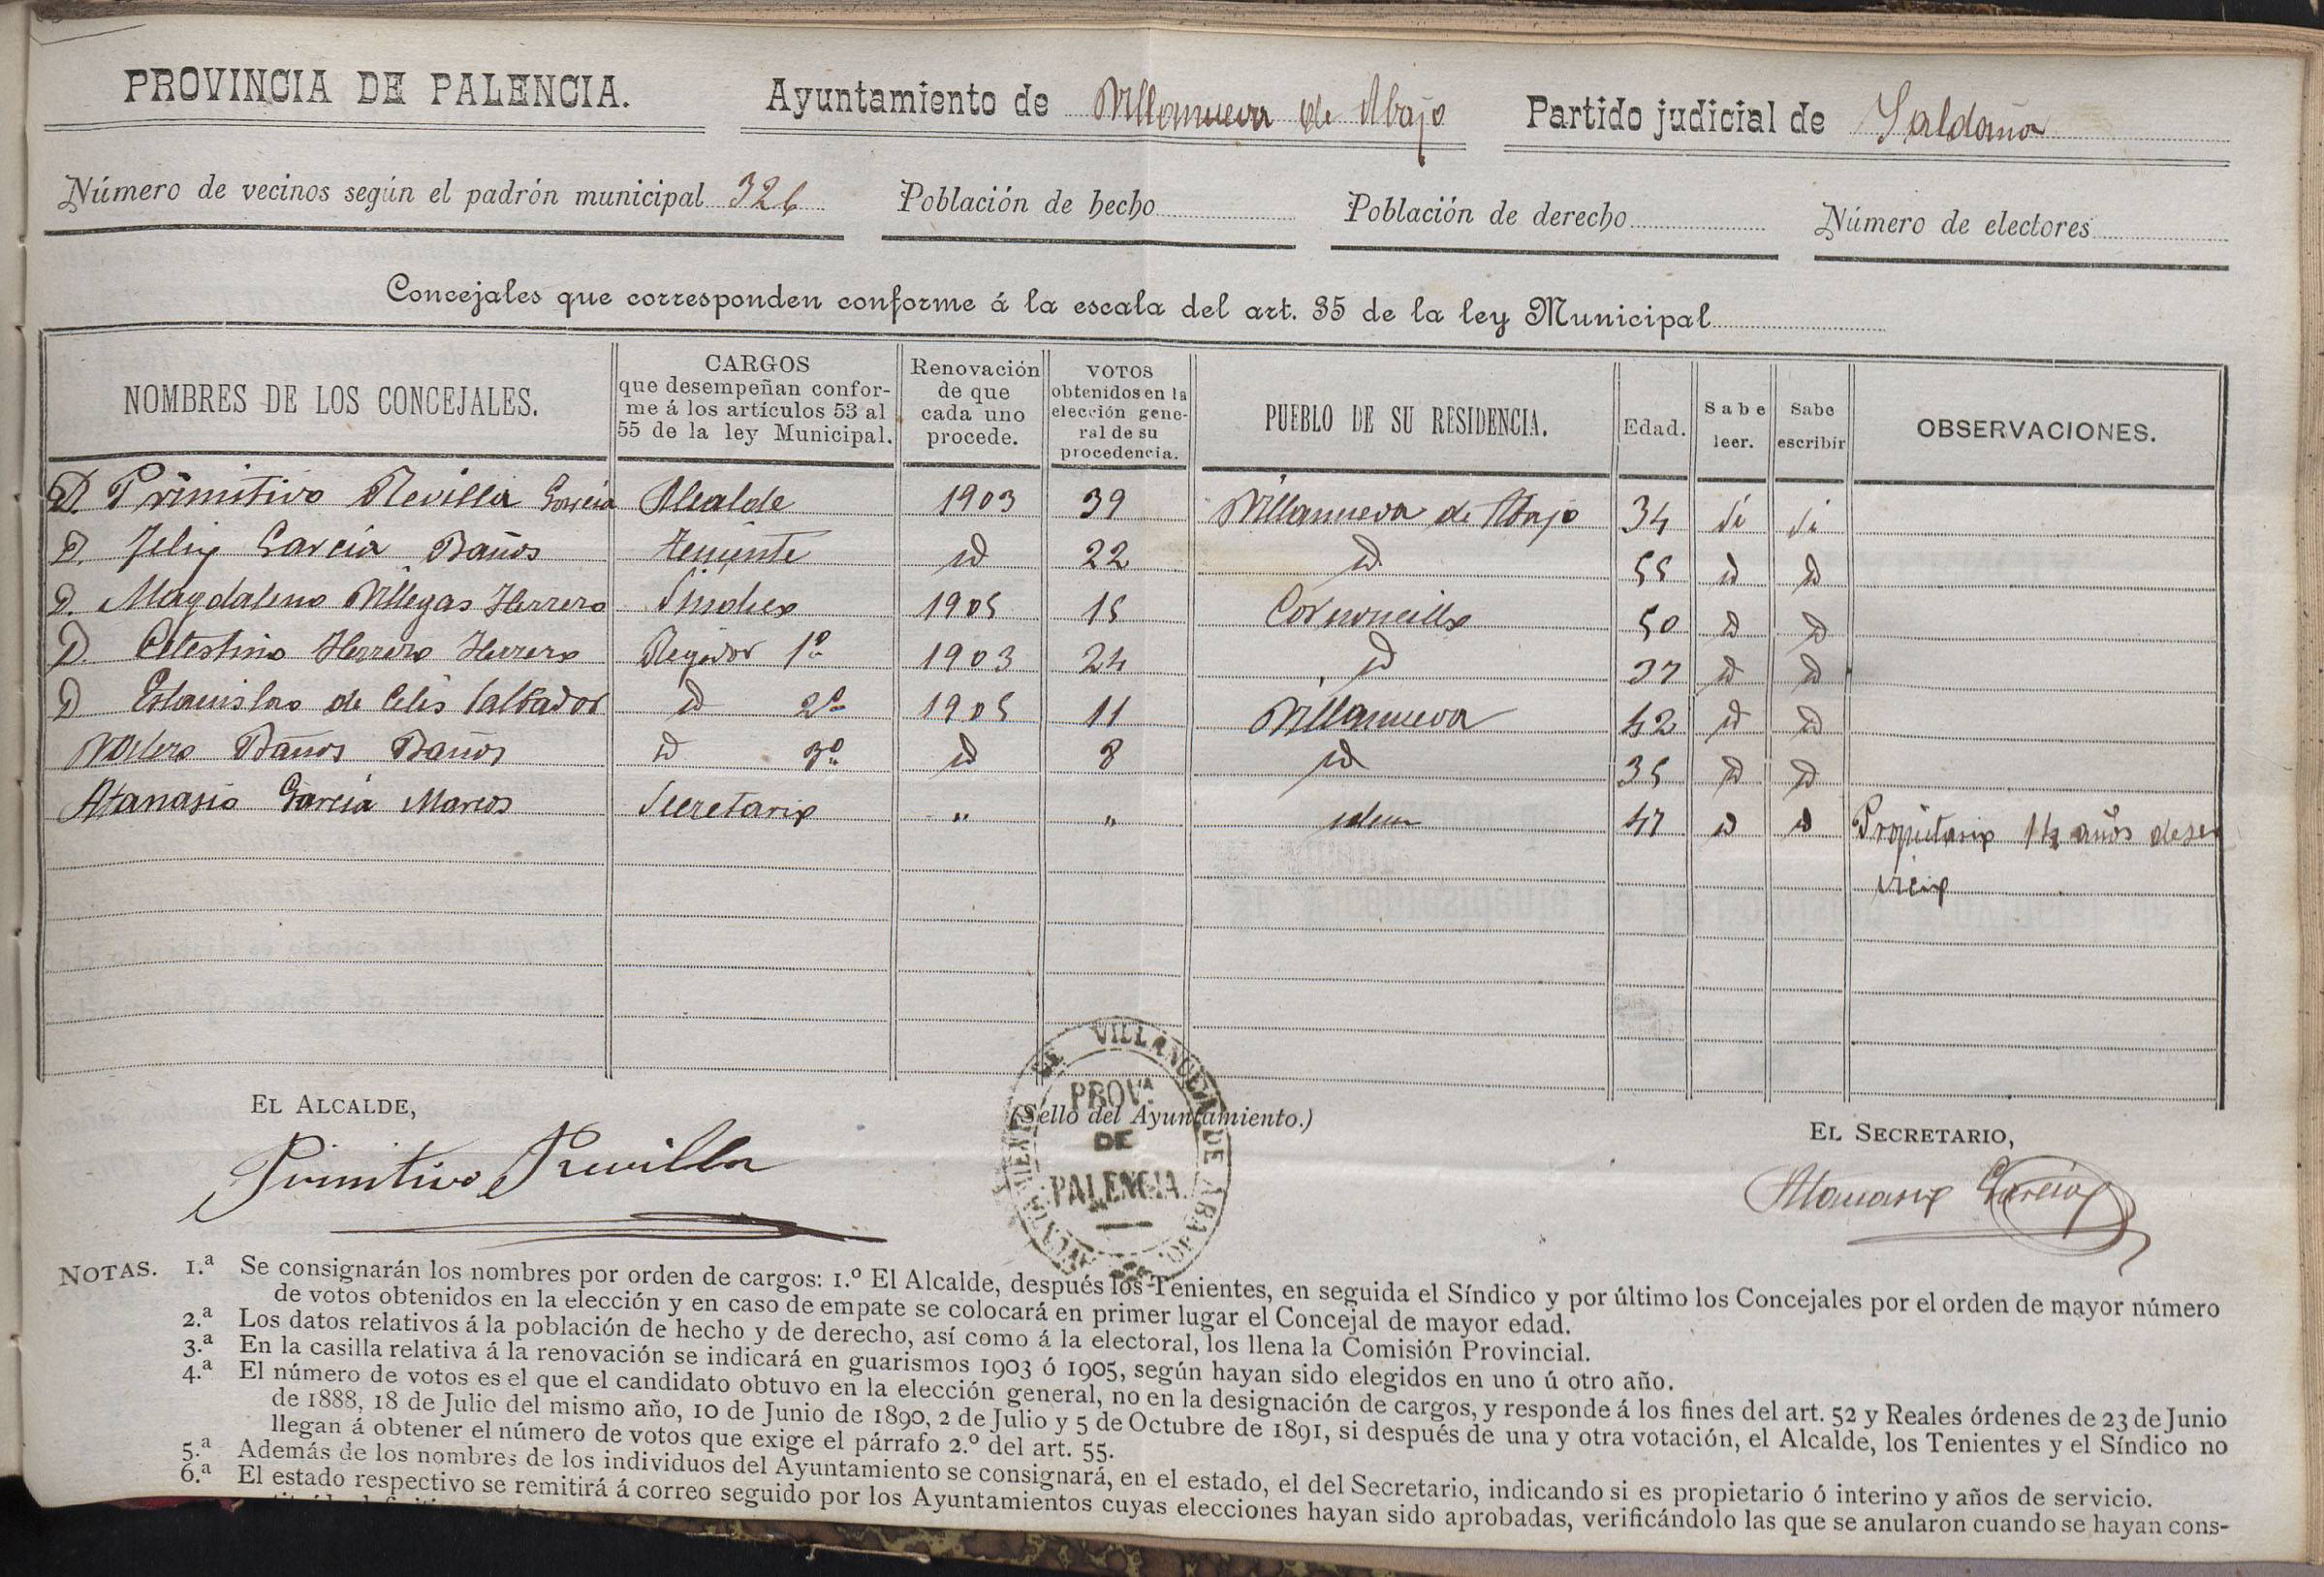 PROVINCIA DE PALENCIA. Ayuntamiento de Villanueva de Abajo Partido judicial de Saldaña
Número de vecinos según el padrón municipal 326 Población de hecho Población de derecho Número de electores
Concejales que corresponden conforme á la escala del art. 35 de la ley Municipal
NOMBRES DE LOS CONCEJALES.
CARGOS
que desempeñan confor-
me á los artículos 53 al
55 de la ley Municipal.
Renovación
de que
cada uno
procede.
VOTOS
obtenidos en la
elección gene-
ral de su
procedencia.
PUEBLO DE SU RESIDENCIA.
Edad.
Sabe
leer.
Sabe
escribir
OBSERVACIONES.
D. Primitivo Revilla García Alcalde 1903 39 Villanueva de Abajo 34 Si Si
D. Felix García Baños teniente id 22 id 55 id id
D. Magdaleno Villegas Herrero Sindico 1905 15 Cornoncillo 50 id id
D. Celestino Herrero Herrero Regidor 1º 1903 24 id 37 id id
D Estanislao de Celis Salbador id 2º 1905 11 Villanueva 42 id id
Baños Baños id 3º id 8 id 35 id id
Atanasio García Marcos Secretario " " idem 47 id id Propietario 14 años de ser
vicio
EL ALCALDE,
(Sello del Ayuntamiento.)
EL SECRETARIO,
Primitivo Revilla
Atanasio García
AYUNTAMIENTO DE VILLANUEVA DE ABAJO.
PROV.ª
DE
PALENCIA
NOTAS. 1.ª Se consignarán los nombres por orden de cargos: 1.º El Alcalde, después los Tenientes, en seguida el Síndico y por último los Concejales por el orden de mayor número
de votos obtenidos en la elección y en caso de empate se colocará en primer lugar el Concejal de mayor edad.
2.ª Los datos relativos á la población de hecho y de derecho, así como á la electoral, los llena la Comisión Provincial.
3.ª En la casilla relativa á la renovación se indicará en guarismos 1903 ó 1905, según hayan sido elegidos en uno ú otro año.
4.ª El número de votos es el que el candidato obtuvo en la elección general, no en la designación de cargos, y responde á los fines del art. 52 y Reales órdenes de 23 de Junio
de 1888, 18 de Julio del mismo año, 10 de Junio de 1890, 2 de Julio y 5 de Octubre de 1891, si después de una y otra votación, el Alcalde, los Tenientes y el Síndico no
llegan á obtener el número de votos que exige el párrafo 2.º del art. 55.
5.ª Además de los nombres de los individuos del Ayuntamiento se consignará, en el estado, el del Secretario, indicando si es propietario ó interino y años de servicio.
6.ª El estado respectivo se remitirá á correo seguido por los Ayuntamientos cuyas elecciones hayan sido aprobadas, verificándolo las que se anularon cuando se hayan cons-